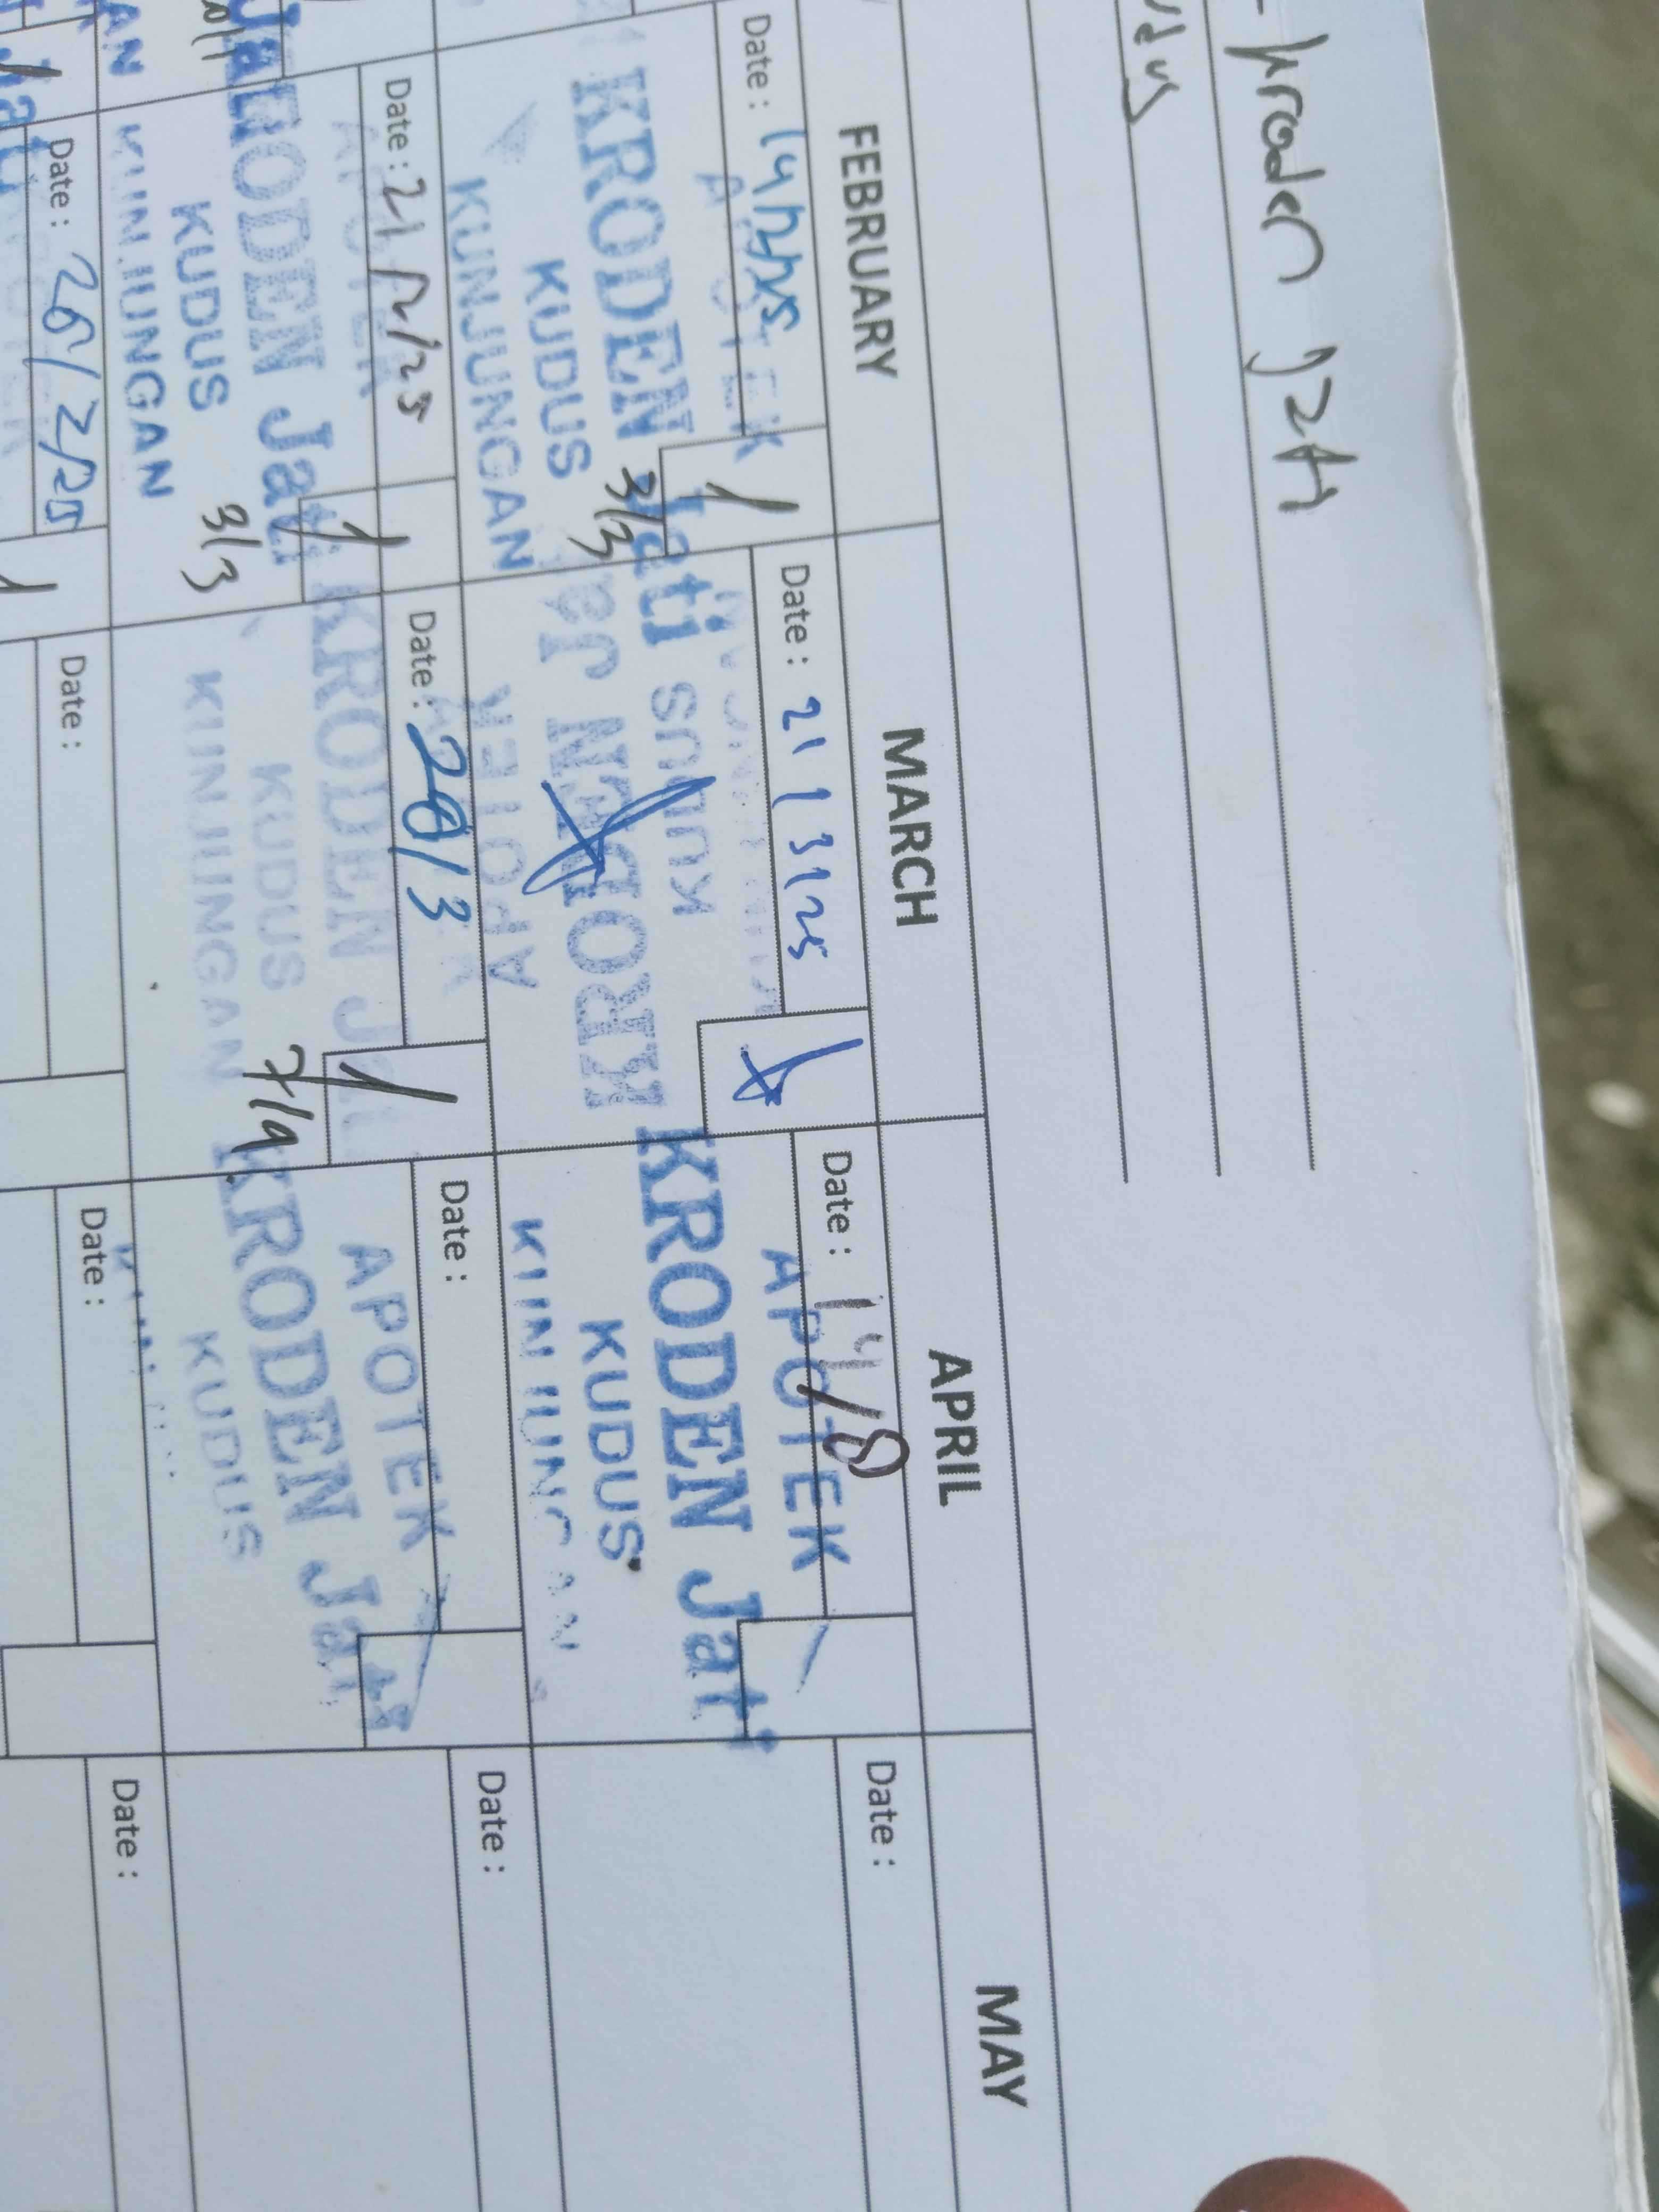 - kroden jati
FEBRUARY MARCH APRIL MAY
Date : 14/2/25
Date : 21/3/25
Date : 14/8
Date :
APOTEK
KRODEN Jati
KUDUS
KUNJUNGAN
3/3
APOTEK
KRODEN Jat
KUDUS
APOTEK
KRODEN Jati
KUDUS
KUNJUNGAN
Date : 21/2/25
Date : 28/3
Date :
Date :
APOTEK
KRODEN Jati
KUDUS
KUNJUNGAN
3/3
KRODEN Jati
KUDUS
KUNJUNGAN
APOTEK
KRODEN Jati
KUDUS
Date : 26/2/25
Date :
Date :
Date :